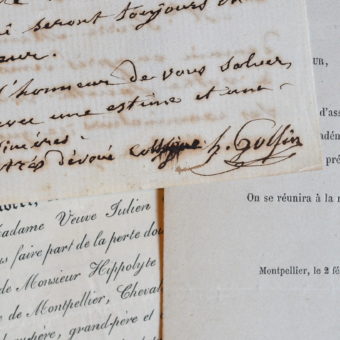 seront toujours
eur.
l'honneur de vous saluer
avec une estime et une
sincères.
très dévoué collègue h. Golfin
Madame Veuve Julien
us faire part de la perte dou
de Monsieur Hippolyte
e de Montpellier, Cheval
grand-père et
UR,
d'as
adém
pré
On se réunira à la m
Montpellier, le 2 fé